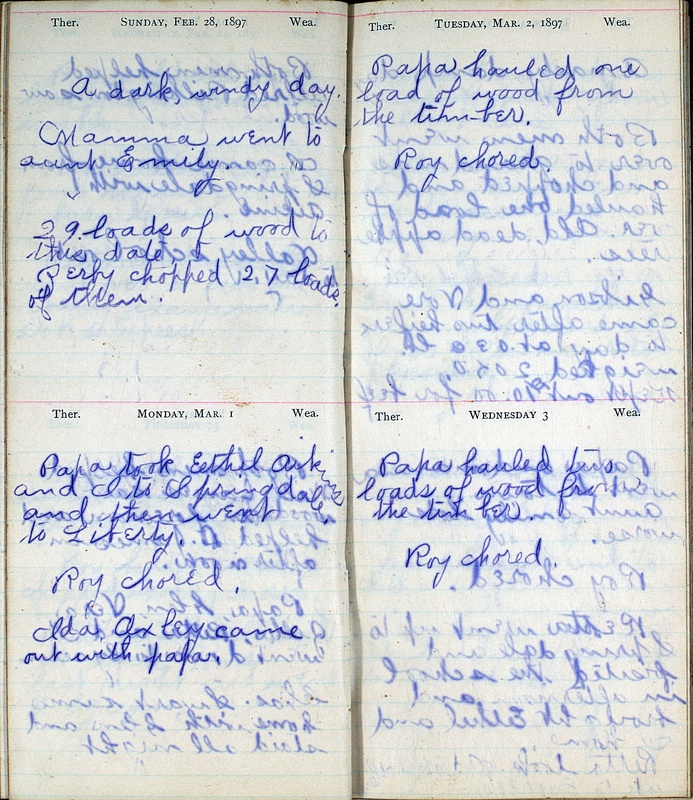 Ther. SUNDAY, FEB. 28, 1897 Wea.
A dark, windy day.
Mamma went to
aunt Emily.
29 loads of wood to
this date
chopped 27 loads
of them.
Ther. MONDAY, MAR. 1 Wea.
Papa took Eethel
and I to Springdale,
and then went
to Liberty.
Roy chored.
Ida Axley came
out with papa.
Ther. TUESDAY, MAR. 2, 1897 Wea.
Papa hauled one
load of wood from
the timber.
Roy chored.
Ther. WEDNESDAY 3 Wea.
Papa hauled two
loads of wood from
the timber.
Roy chored.